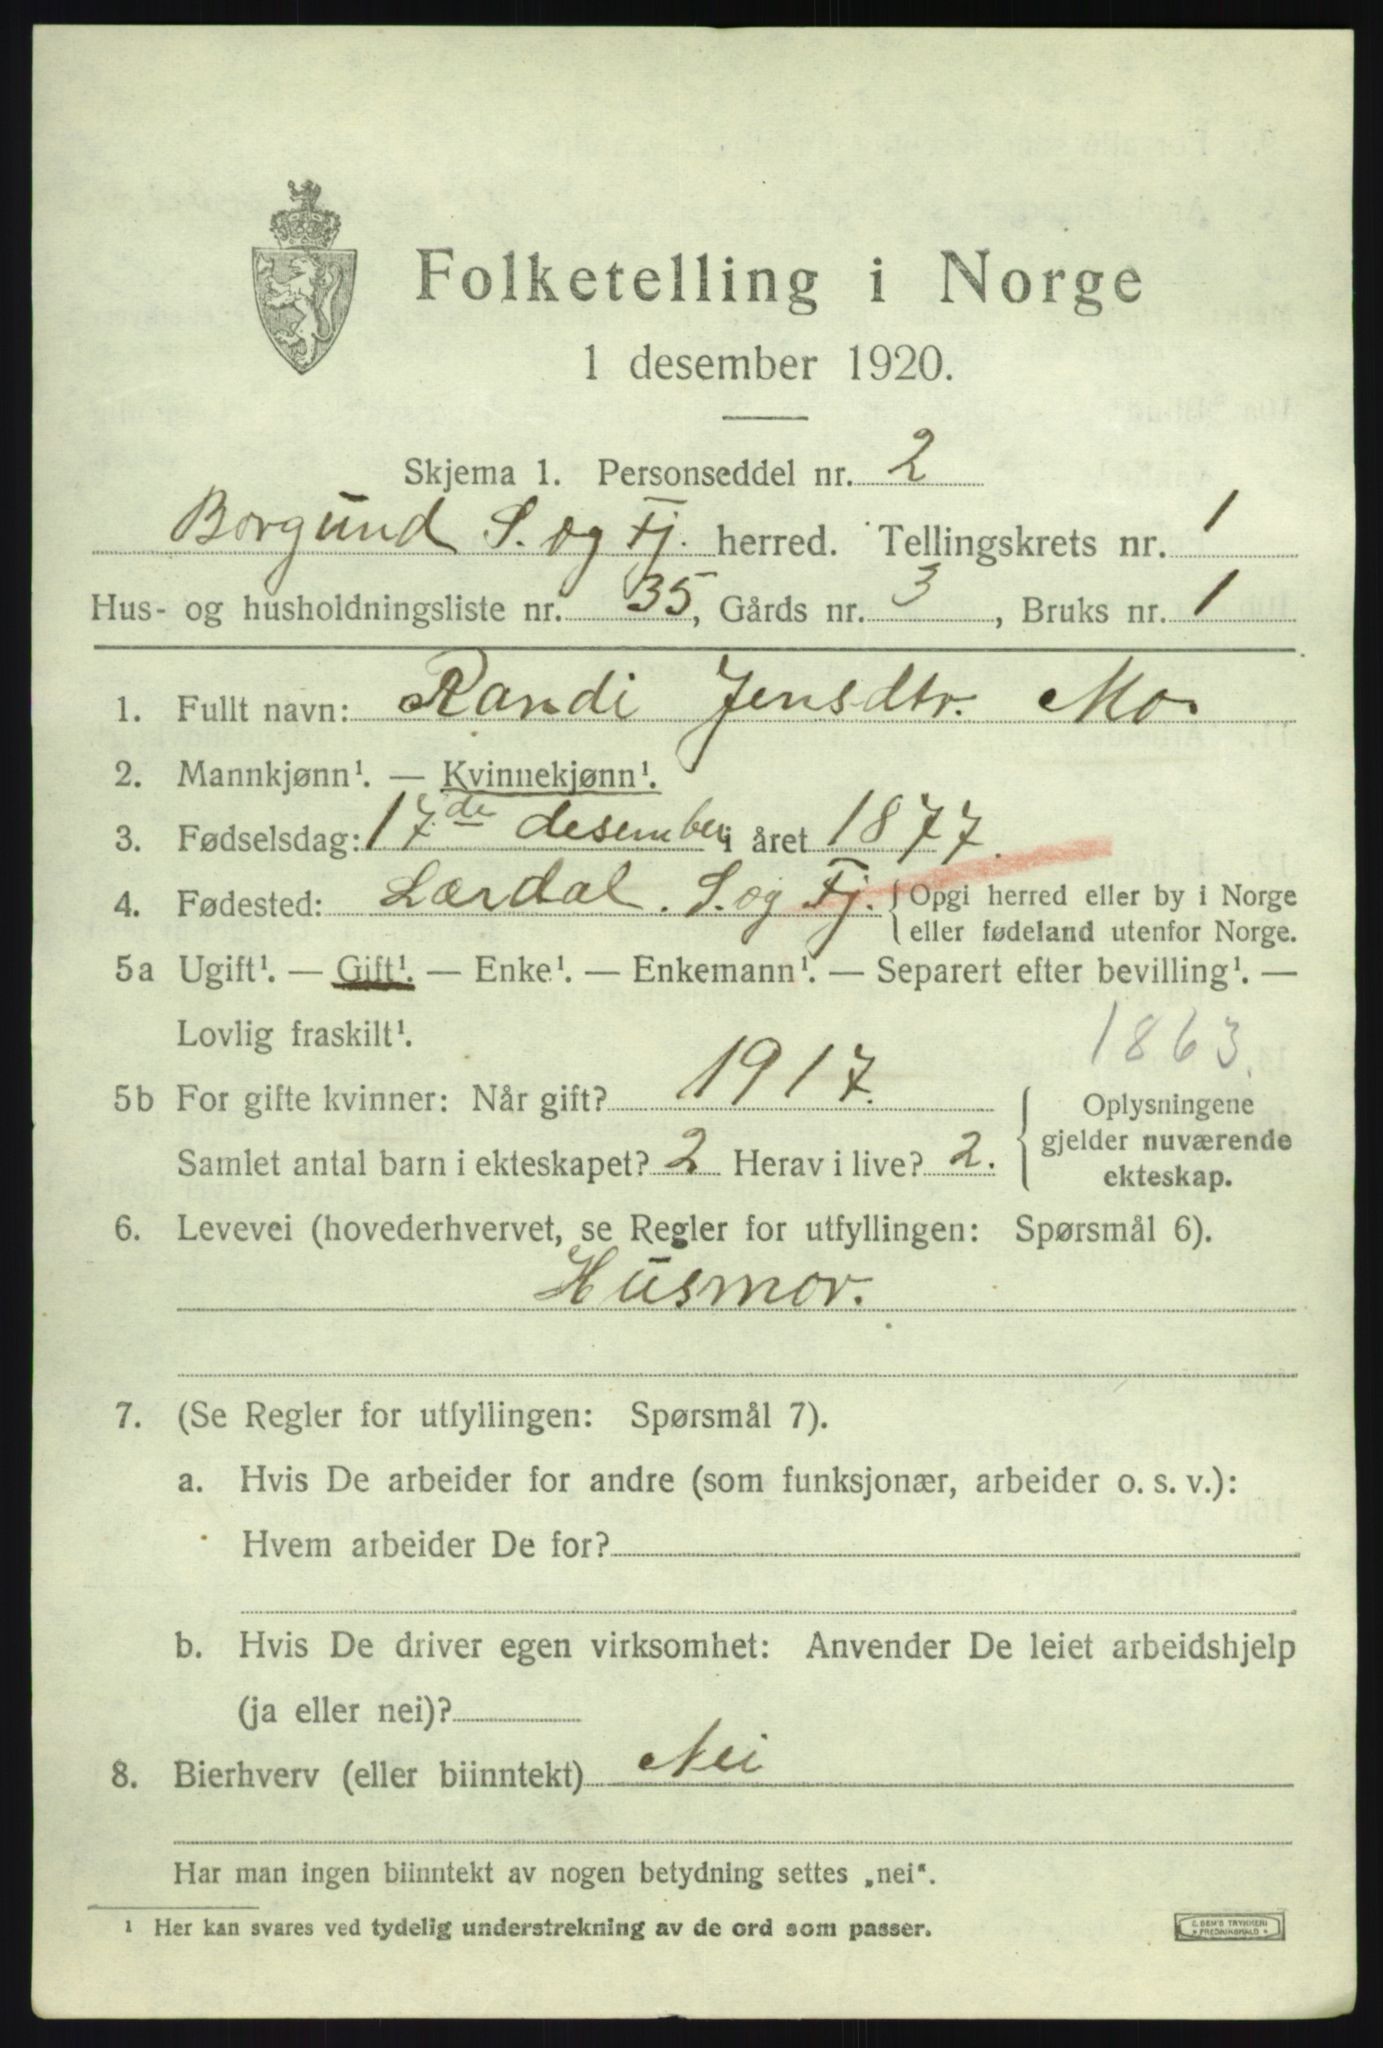 Folketelling i Norge
1 desember 1920.
Skjema 1. Personseddel nr. 2
Borgund S. og Fj. herred. Tellingskrets nr. 1
Hus- og husholdningsliste nr. 35, Gårds nr. 3, Bruks nr. 1
1. Fullt navn: Randi Jensdtr. Mo
2. Mannkjønn¹. — Kvinnekjønn¹.
3. Fødselsdag: 17de desember i året 1877.
4. Fødested: Lærdal. S. og Fj. { Opgi herred eller by i Norge
eller fødeland utenfor Norge.
5a Ugift¹. — Gift¹. — Enke¹. — Enkemann¹. — Separert efter bevilling¹. —
Lovlig fraskilt¹. 1863.
5b For gifte kvinner: Når gift? 1917. { Oplysningene
Samlet antal barn i ekteskapet? 2 Herav i live? 2. gjelder nuværende
ekteskap.
6. Levevei (hovederhvervet, se Regler for utfyllingen: Spørsmål 6).
Husmor.
7. (Se Regler for utfyllingen: Spørsmål 7).
a. Hvis De arbeider for andre (som funksjonær, arbeider o. s. v.):
Hvem arbeider De for?
b. Hvis De driver egen virksomhet: Anvender De leiet arbeidshjelp
(ja eller nei)?
8. Bierhverv (eller biinntekt) Nei
Har man ingen biinntekt av nogen betydning settes „nei".
¹ Her kan svares ved tydelig understrekning av de ord som passer.
E. SEM'S TRYKKERI
* FREDRIKSHALD *